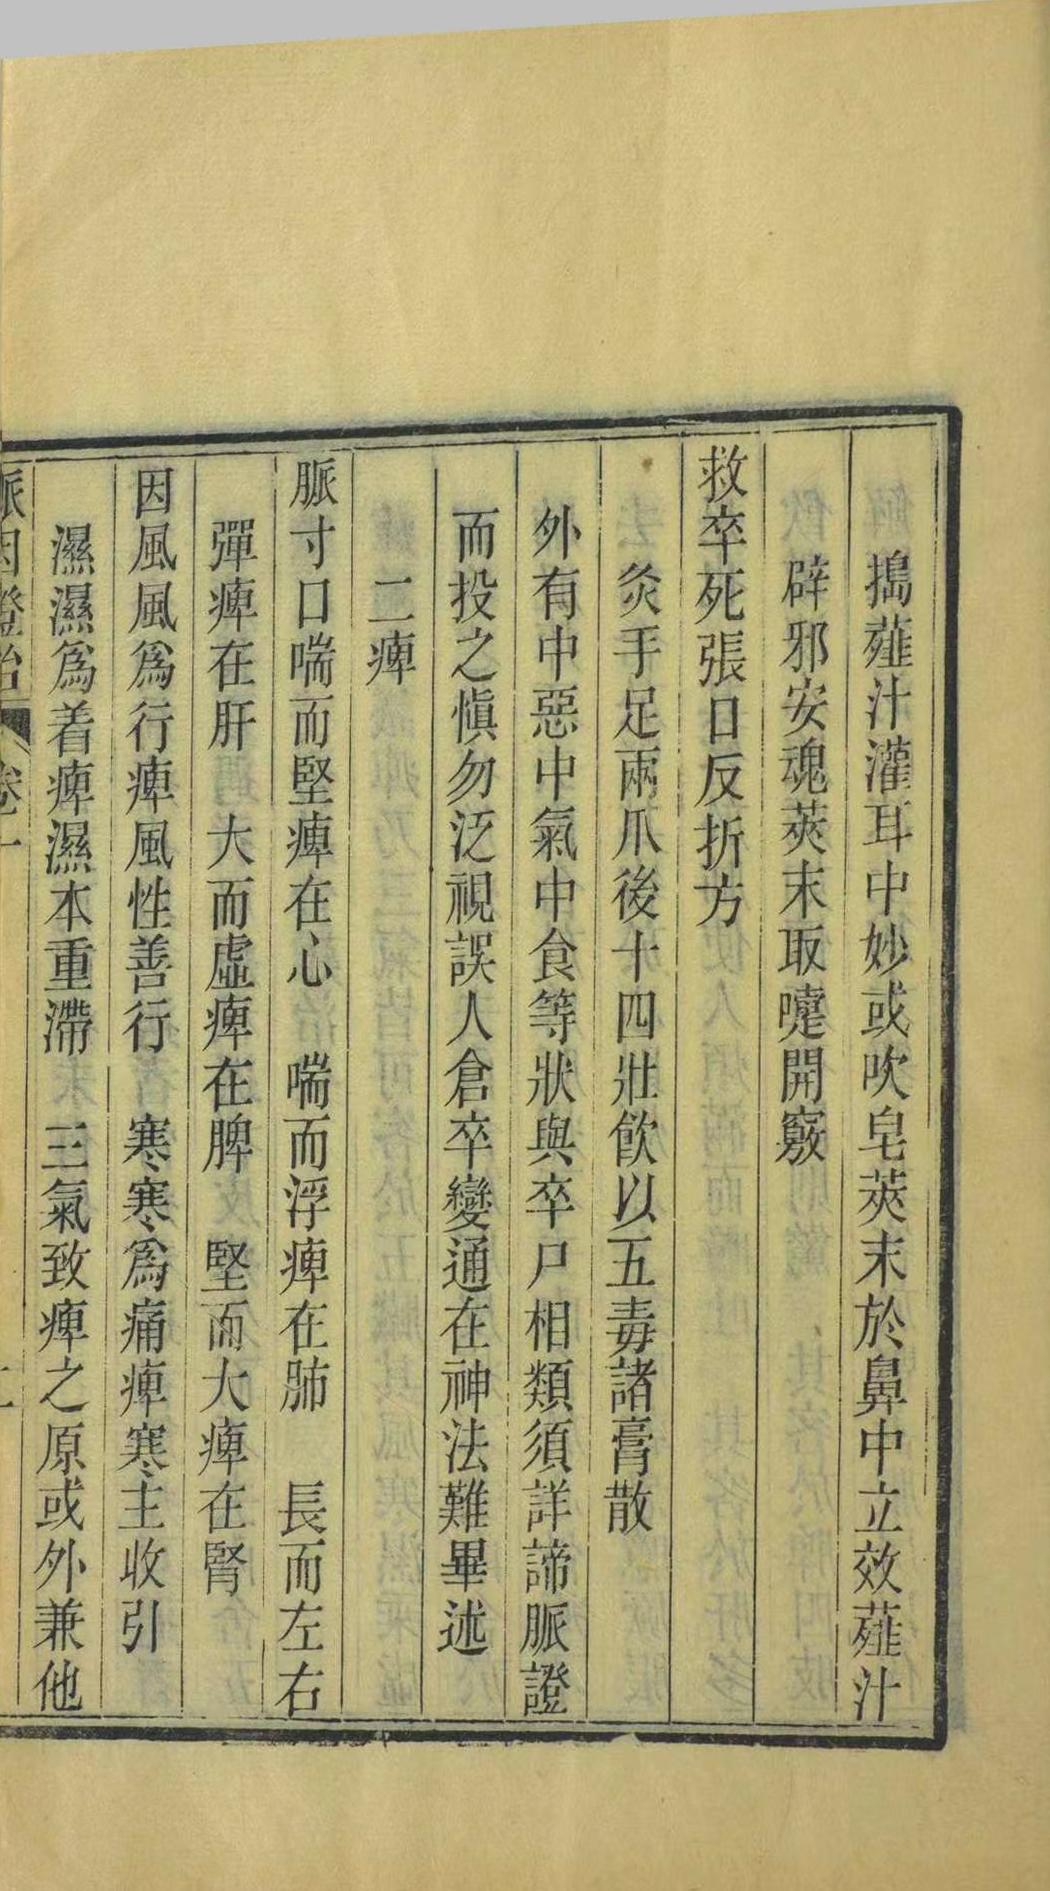 搗薤汁灌耳中妙或吹皂莢末於鼻中立效薤汁
辟邪安魂莢末取嚏開竅
救卒死張口反折方
灸手足兩爪後十四壯飲以五毒諸膏散
外有中惡中氣中食等狀與卒尸相類須詳諦脈證
而投之愼勿泛視誤人倉卒變通在神法難畢述
二痺
脈寸口喘而堅痺在心 喘而浮痺在肺 長而左右
彈痺在肝 大而虛痺在脾 堅而大痺在腎
因風風爲行痺風性善行 寒寒爲痛痺寒主收引
濕濕爲着痺濕本重滯 三氣致痺之原或外兼他
脈因證治 卷一